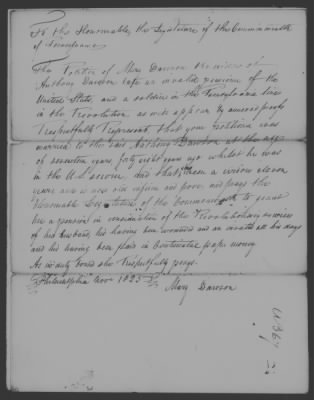 To the Honourable, the Legislature of the Commonwealth
of Pennsylvania
The Petition of Mary Dawson the widow of
Anthony Dawson late an invalid pensioner of the
United States, and a soldier in the Pennsylvania line
in the Revolution as will appear by annexed proofs
Respectfully Represent, that your petitioner was
married to the said Anthony Dawson at the age
of seventeen years, forty eight years ago whilst he was
in the U.S. service and that she has been a widow eleven
years and is now old infirm and poor, and prays the
Honourable Legislature of the Commonwealth to grant
her a pension in consideration of the Revolutionary services
of her husband, his having been wounded and an invalid all his days
and his having been paid in Continental paper money
As in duty bound she Respectfully prays.
Philadelphia Nov 1825 Mary Dawson